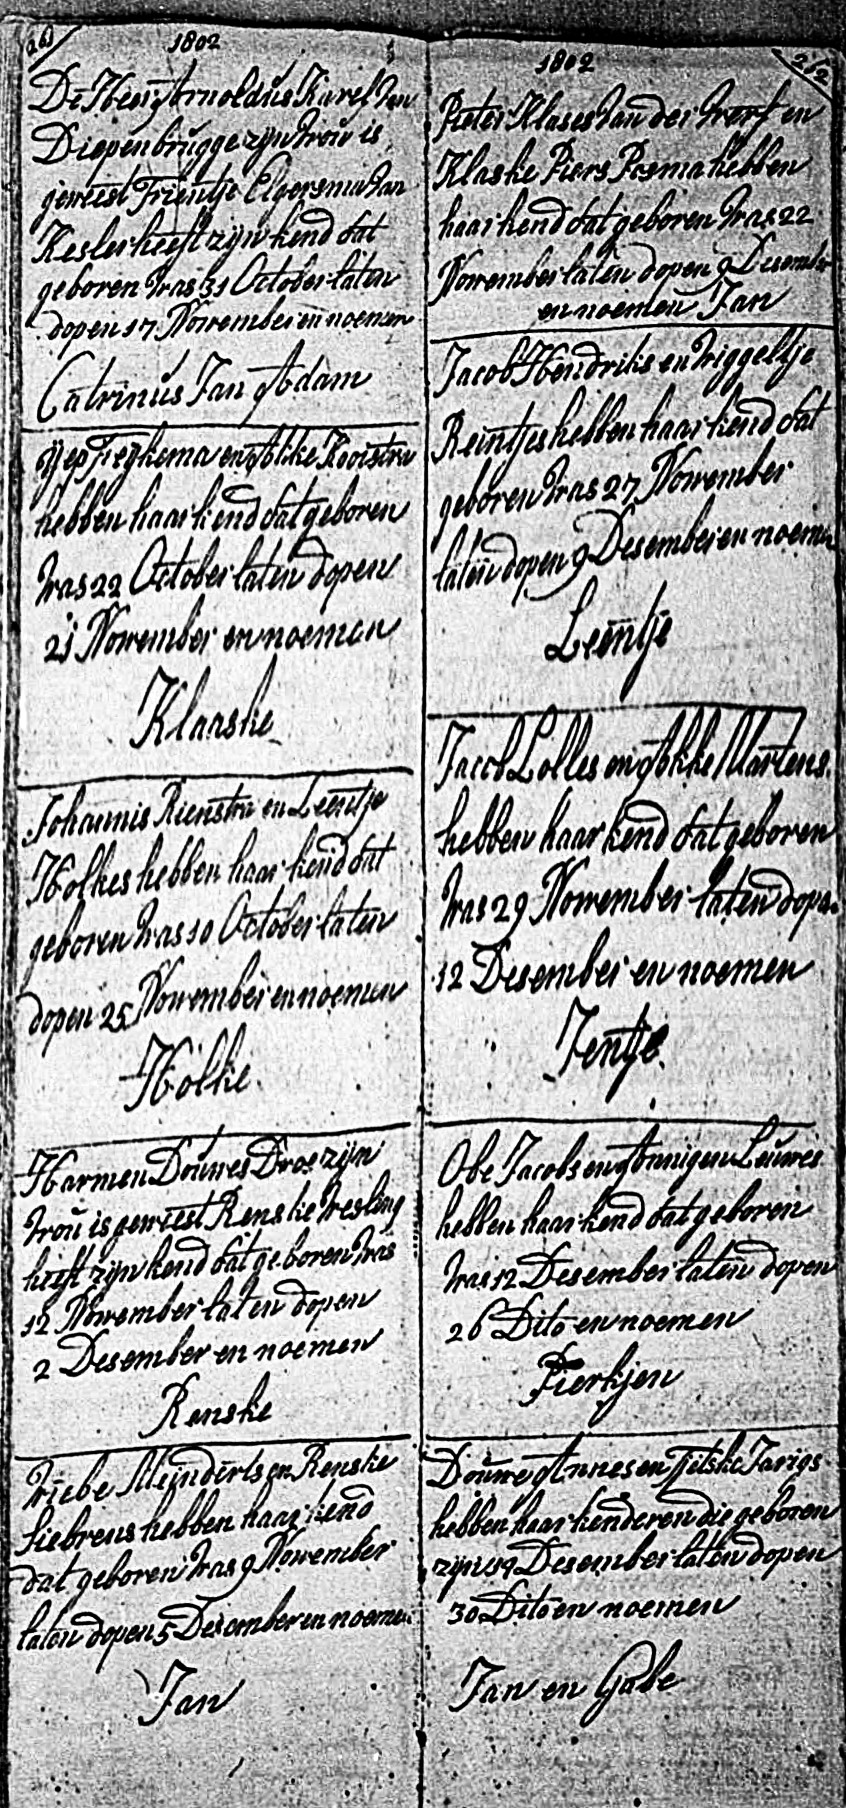 261
1802
De Heer Arnoldus Karel Van
Diepenbrugge zijn Vrou is
geweest Frientje Elgersma Van
Kesler heeft zijn kend dat
geboren Was 31 October laten
dopen 17 November en noemen
Catrinus Jan Adam
Yep Feijkema en Aukke Kooistra
hebben haar kend dat geboren
Was 22 October laten dopen
21 November en noemen
Klaaske
Johannis Rienstra en Leentje
Holkes hebben haar kend dat
geboren Was 10 October laten
dopen 25 November en noemen
Holke
Harmen Douwes Droe zijn
Vrou is geweest Renske Wesling
heeft zijn kend dat geboren Was
12 November laten dopen
2 Desember en noemen
Renske
Wiebe Meinderts en Renske
Siebrens hebben haar kend
dat geboren Was 9 November
laten dopen 5 Desember en noemen
Jan
262
1802
Pieter Klases Van der Werf en
Klaske Piers Posma hebben
haar kend dat geboren Was 22
November laten dopen 9 Desember
en noemen Jan
Jacob Hendriks en Wiggeltje
Reintjes hebben haar kend dat
geboren Was 27 November
laten dopen 9 Desember en noemen
Leentje
Jacob Lolles en Aukke Martens
hebben haar kend dat geboren
Was 29 November laten dopen
12 Desember en noemen
Jentje
Obe Jacobs en Annigjen Leuwes
hebben haar kend dat geboren
Was 12 Desember laten dopen
26 Dito en noemen
Pierkjen
Douwe Annes en Jitske Jarigs
hebben haar kenderen die geboren
zijn 19 Desember laten dopen
30 Dito en noemen
Jan en Gabe